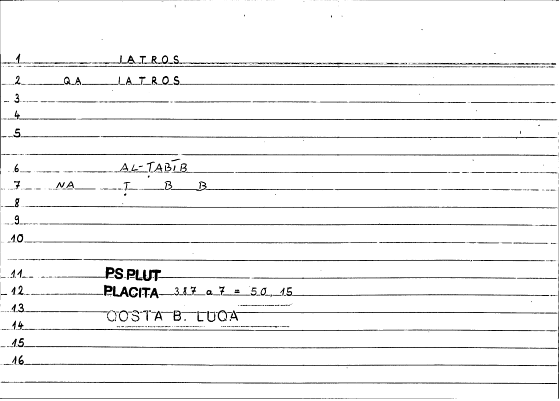 1 IATROS
2 QA IATROS
3
4
5
6 AL-ṬABĪB
7 NA Ṭ B B
8
9
10
11 PS.PLUT
12 PLACITA 387 a 7 = 50, 15
13
QOSTA B. LUQA
14
15
16